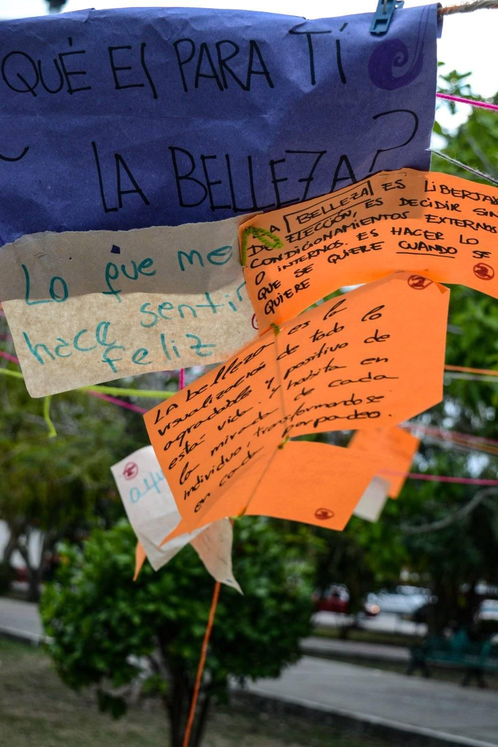 QUÉ ES PARA TÍ
LA BELLEZA?
LA BELLEZA ES LIBERTAD
DE ELECCIÓN, ES DECIDIR SIN
CONDICIONAMIENTOS EXTERNOS
O INTERNOS. ES HACER LO
QUE SE QUIERE CUANDO SE
QUIERE
Lo que me
hace sentir
feliz
La belleza es la
visualización de todo lo
agradable y positivo de
esta vida. y habita en
la mirada de cada
individuo, transformandose
en cada